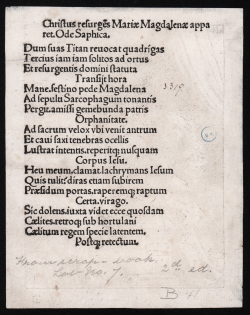 Christus resurgēs Mariæ Magdalenæ appa
ret. Ode Saphica.
Dum suas Titan reuocat quadrigas
Tercius iam iam solitos ad ortus
Et resurgentis domini statuta
Transijt hora
Mane, festino pede Magdalena
Ad sepulu Sarcophagum tonantis
Pergit, amissi gemebunda patris
Orphanitate.
Ad sacrum velox vbi venit antrum
Et caui saxi tenebras ocellis
Lustrat intentis, reperitq; nusquam
Corpus Iesu.
Heu meum, clamat, lachrymans Iesum
Quis tulit? diras etiam subirem
Præsidum portas, raperemq; raptum
Certa virago.
Sic dolens, iuxta videt ecce quosdam
Cælites, retroq; sub hortulani
Cælitum regem specie latentem,
Postq; retectum.
From scrap-book
Lot no. 7.
2nd ed.
B